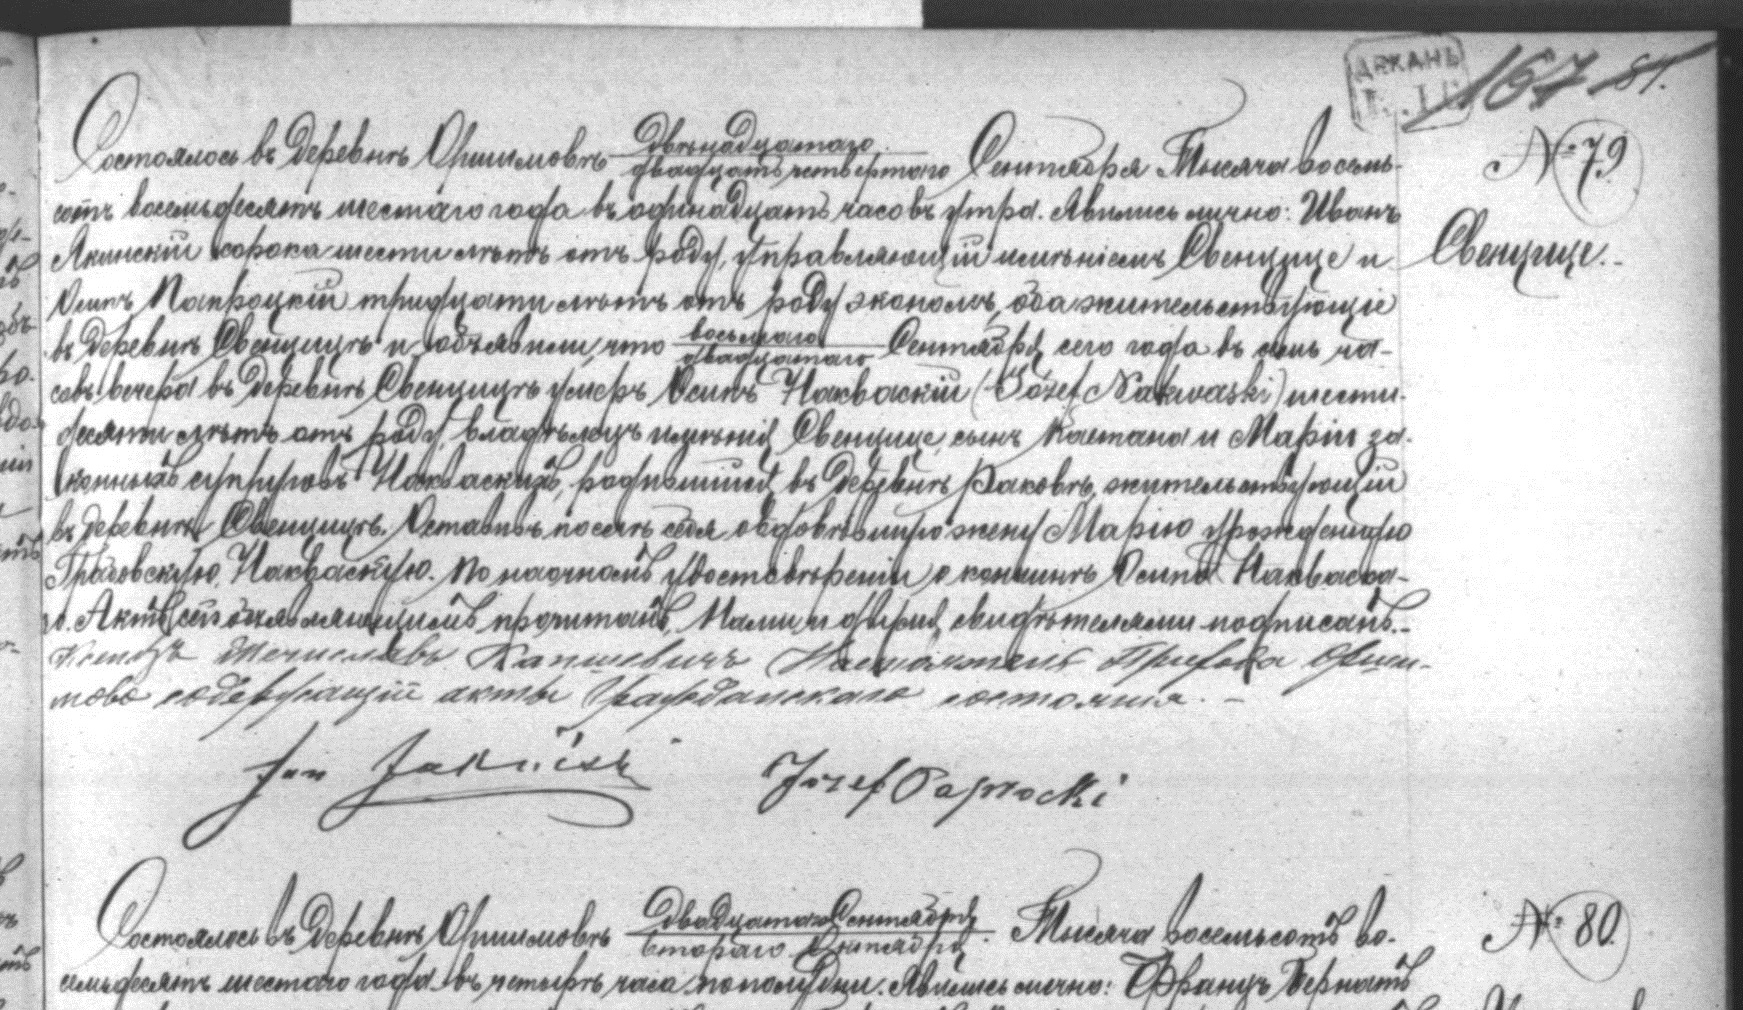 ДЕКАНЬ
167 84.
№ 79
Свенцице.
Состоялось въ деревнѣ Оршимовѣ двѣнадцатаго / двадцать четвертаго Сентября Тысяча восемь-
сотъ восемьдесятъ шестаго года въ одинадцать часовъ утра. Явились лично: Иванъ
Якинскій сорока шести лѣтъ отъ роду, управляющій имѣніемъ Свенцице и
Осипъ Папроцкій тридцати лѣтъ отъ роду экономъ, оба жительствующіе
въ деревнѣ Свенцицѣ и объявили, что восьмаго / двадцатаго Сентября сего года въ семь ча-
совъ вечера въ деревнѣ Свенцицѣ умеръ Осипъ Накваскій (Józef Nakwaski) шести-
десяти лѣтъ отъ роду, владѣлецъ имѣнія Свенцице, сынъ Каетана и Маріи за-
конныхъ супруговъ Накваскихъ, родившійся въ деревнѣ Раковѣ, жительствующій
въ деревнѣ Свенцицѣ. Оставивъ послѣ себя овдовѣвшую жену Марію урожденную
Грабовскую, Накваскую. По наочномъ удостовѣреніи о кончинѣ Осипа Накваска-
го. Актъ сей объявляющимъ прочитанъ, Нами и двумя свидѣтелями подписанъ.
Ксендзъ Мечиславъ Капшевичъ Настоятель Прихода Орши-
мово содержащій акты Гражданскаго состоянія. -
Jan Jakiński Józef Paprocki
Состоялось въ деревнѣ Оршимовѣ двадцатаго Сентября / втораго Октября. Тысяча восемьсотъ во-
№ 80.
семьдесятъ шестаго года въ четырѣ часа пополудни. Явились лично: Францъ Бернатъ